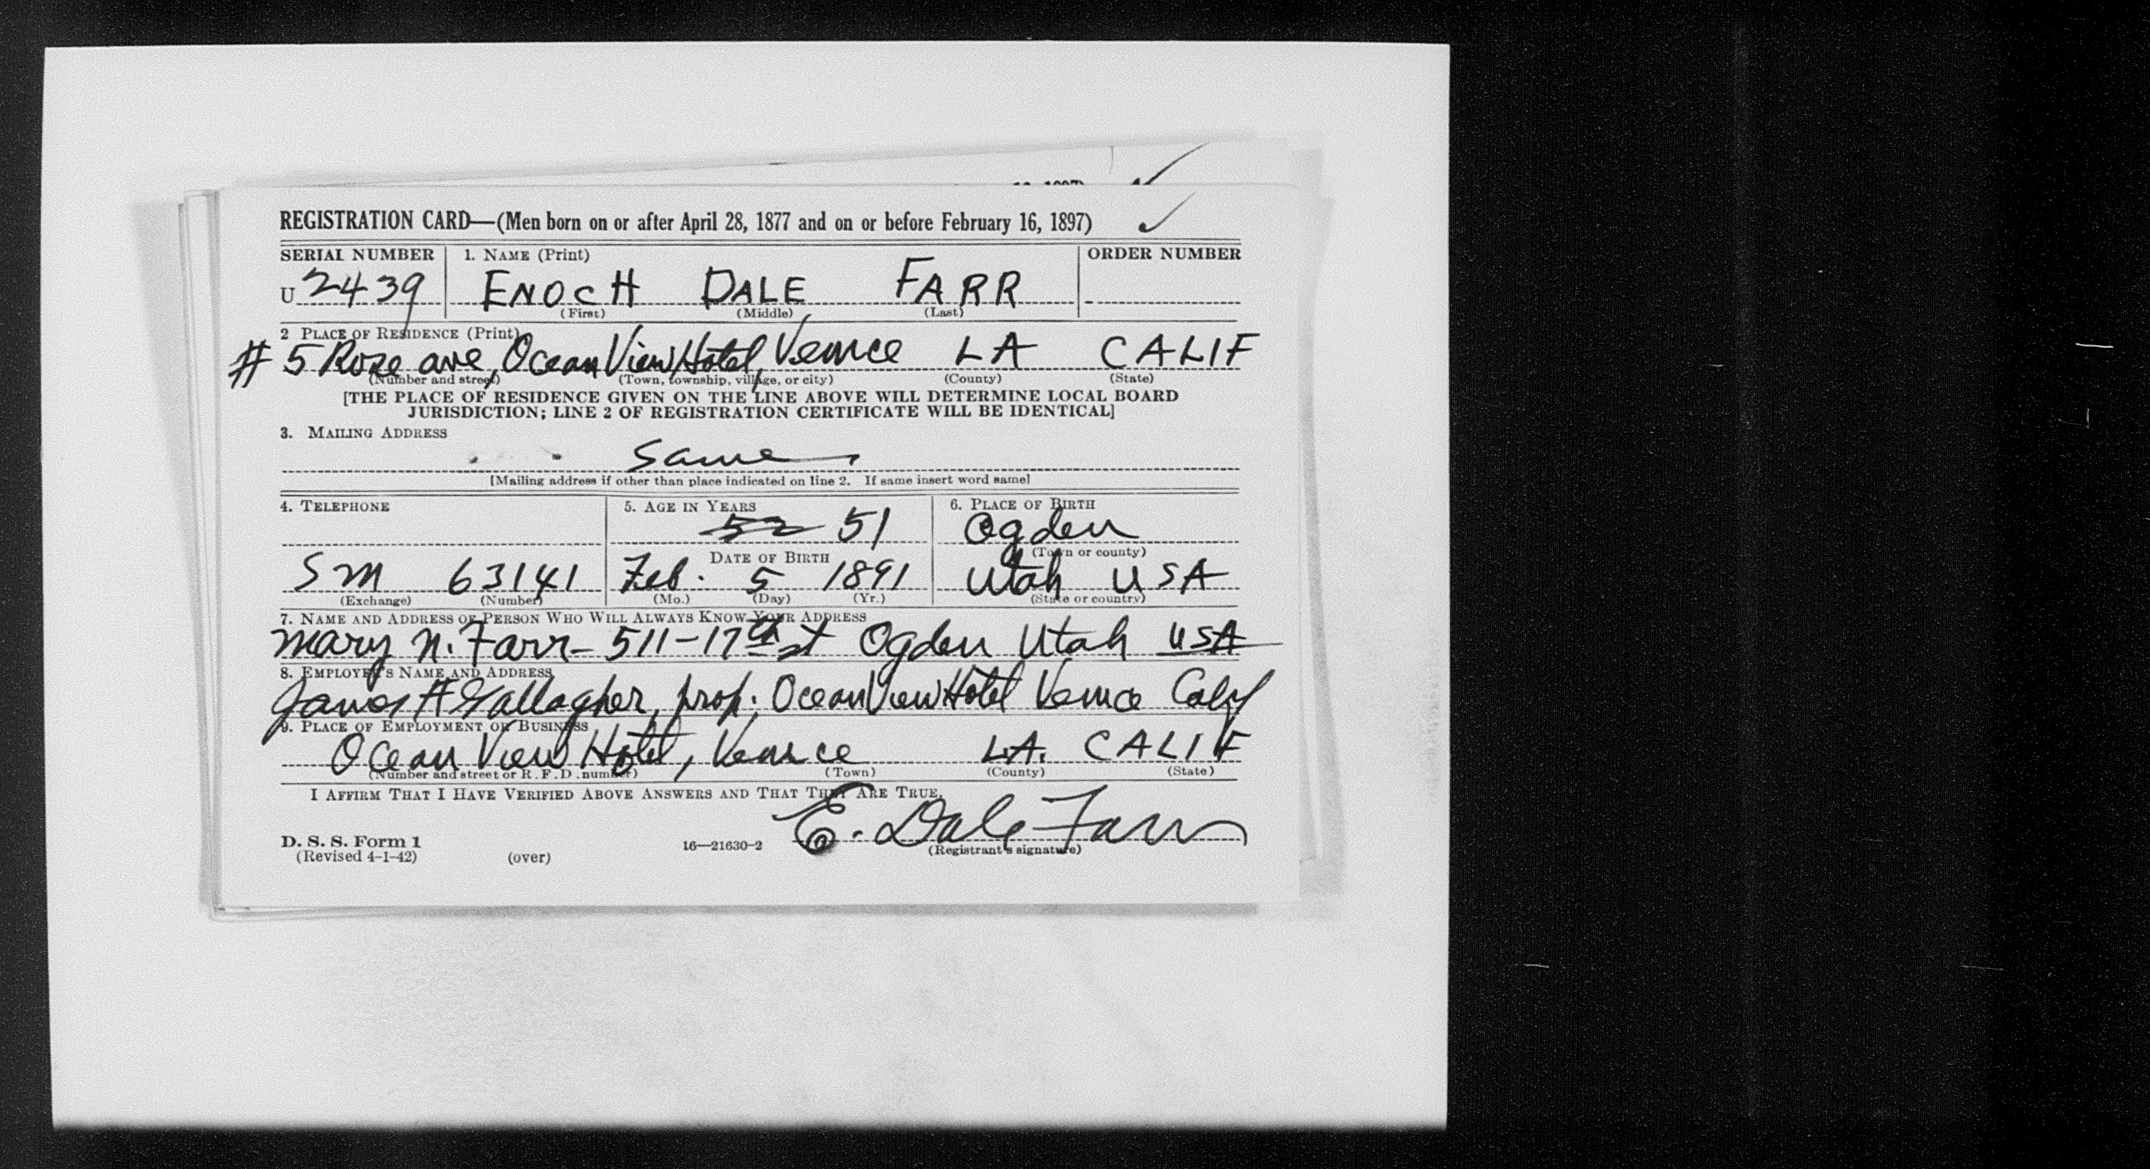 REGISTRATION CARD—(Men born on or after April 28, 1877 and on or before February 16, 1897)
SERIAL NUMBER 1. NAME (Print) ORDER NUMBER
U 2439 ENOCH DALE FARR
(First) (Middle) (Last)
2 PLACE OF RESIDENCE (Print)
# 5 Rose ave, Ocean View Hotel, Venice LA CALIF
(Number and street) (Town, township, village, or city) (County) (State)
[THE PLACE OF RESIDENCE GIVEN ON THE LINE ABOVE WILL DETERMINE LOCAL BOARD
JURISDICTION; LINE 2 OF REGISTRATION CERTIFICATE WILL BE IDENTICAL]
3. MAILING ADDRESS
Same
[Mailing address if other than place indicated on line 2. If same insert word same]
4. TELEPHONE 5. AGE IN YEARS 6. PLACE OF BIRTH
52 51 Ogden
DATE OF BIRTH (Town or county)
SM 63141 Feb. 5 1891 Utah USA
(Exchange) (Number) (Mo.) (Day) (Yr.) (State or country)
7. NAME AND ADDRESS OF PERSON WHO WILL ALWAYS KNOW YOUR ADDRESS
Mary N. Farr - 511-17th st Ogden Utah USA
8. EMPLOYER'S NAME AND ADDRESS
James H Gallagher, prop. Ocean View Hotel Venice Calif
9. PLACE OF EMPLOYMENT OR BUSINESS
Ocean View Hotel, Venice LA. CALIF
(Number and street or R. F. D. number) (Town) (County) (State)
I AFFIRM THAT I HAVE VERIFIED ABOVE ANSWERS AND THAT THEY ARE TRUE.
E. Dale Farr
D. S. S. Form 1 16—21630-2 (Registrant's signature)
(Revised 4-1-42) (over)